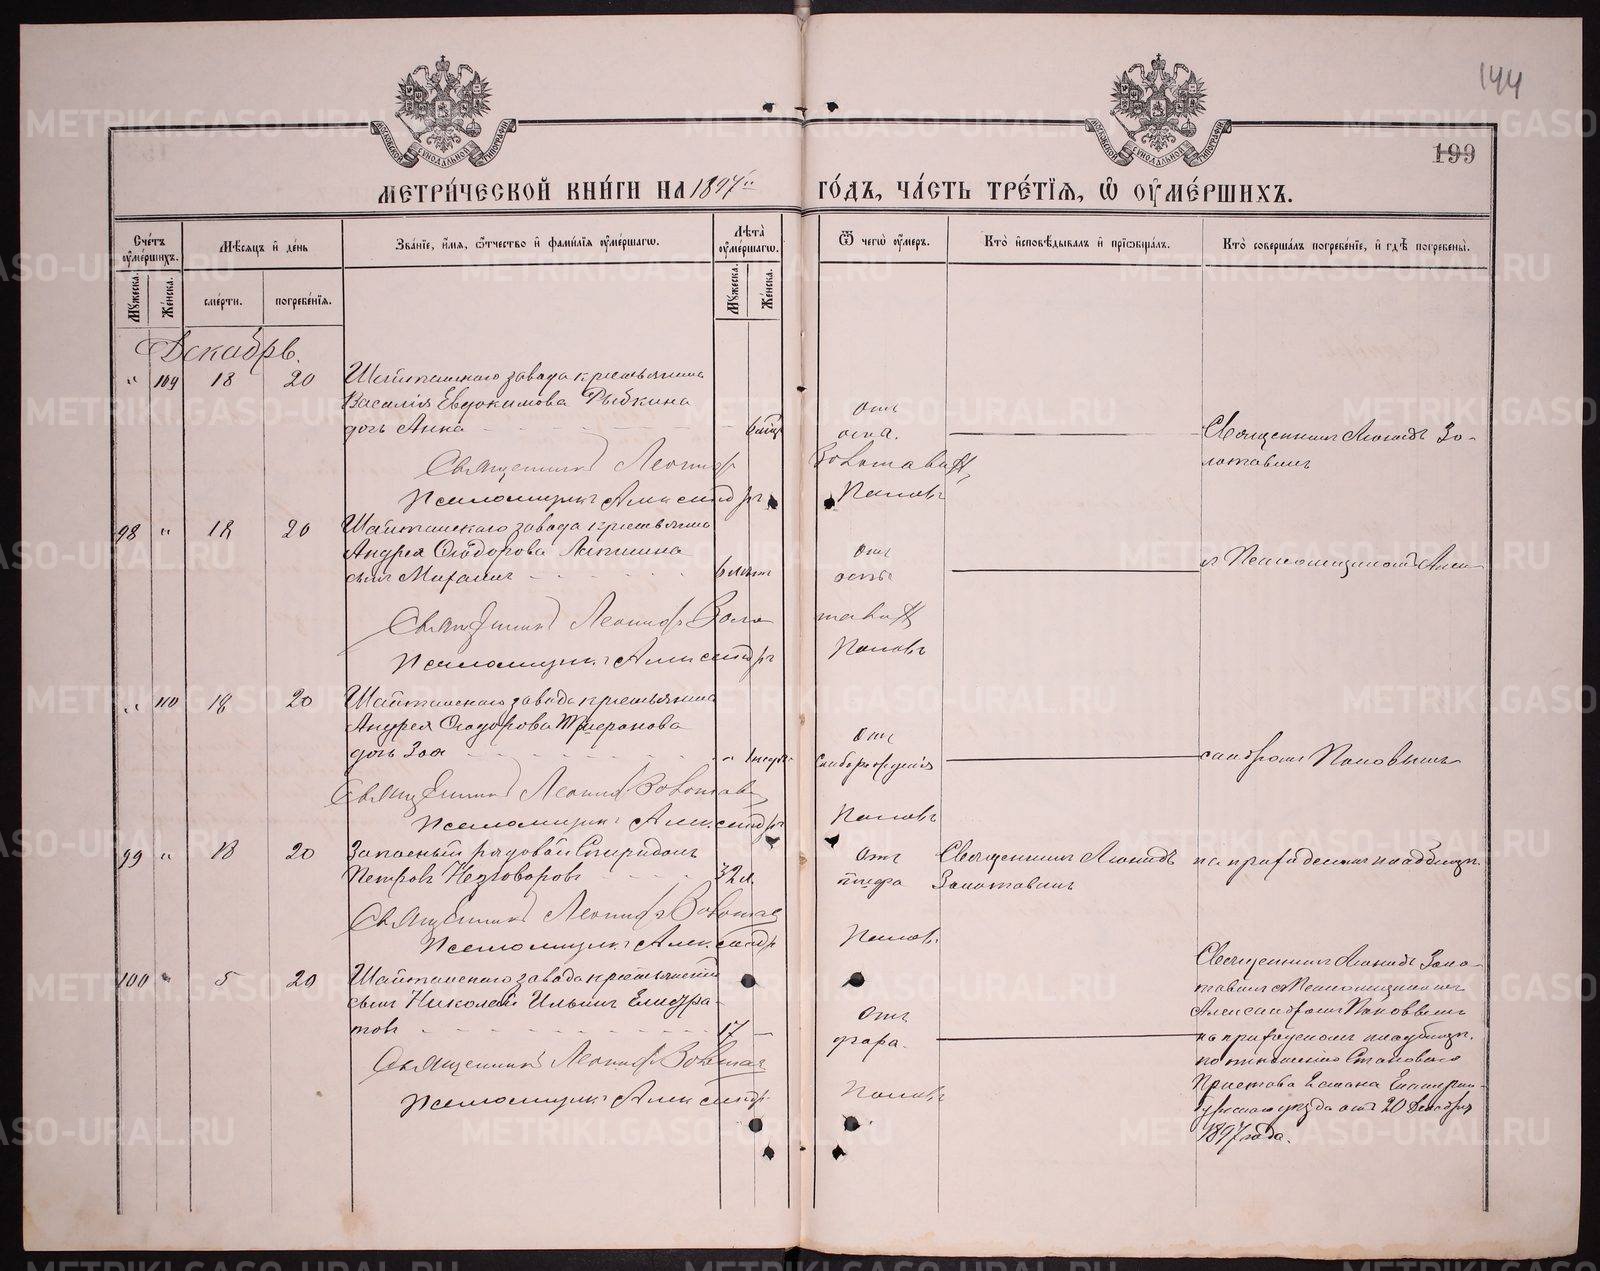 144
199
МЕТРИ́ЧЕСКОЙ КНИ́ГИ НА 1897й ГО́ДЪ, ЧА́СТЬ ТРЕ́ТІЯ, Ѡ ОУМЕ́РШИХЪ.
Сче́тъ оуме́ршихъ.
Мꙋжеска.
Же́нска.
Мѣсяцъ и де́нь
сме́рти.
погребе́нїя.
Зва́нїе, и́мя, ѻ́тчество и фами́лїя оуме́ршагѡ.
Лѣта̀ оуме́ршагѡ.
Мꙋжеска.
Же́нска.
Ѿ чегѡ̀ оу́меръ.
Кто̀ и҆сповѣ́дывалъ и҆ прїѡбща́лъ.
Кто̀ соверша́лъ погребе́нїе, и҆ гдѣ̀ погребены̀.
Декабрь.
" 109 18 20 Шайтанскаго завода крестьянина
Василія Евдокимова Рыбкина
дочь Анна
Отъ
оспа.
Священникъ Леонидъ Зо-
лотавинъ
Священникъ Леонидъ Золотавин
Псаломщикъ Александръ Поповъ
98 " 18 20 Шайтанскаго завода крестьянина
Андрея Ѳеодорова
сынъ
6 лѣтъ
Отъ
оспы
и Псаломщикомъ Алек-
Священникъ Леонидъ Золотавин
Псаломщикъ Александръ Поповъ
" 110 18 20 Шайтанскаго завода крестьянина
Андрея
дочь Зоя
"
Отъ
слаборожденія
сандромъ Поповымъ
Священникъ Леонидъ Золотавин
Псаломщикъ Александръ Поповъ
99 " 18 20 Запасный рядовой Спиридонъ
Петровъ Незговоровъ
32 л.
Отъ
тифа
Священникъ Леонидъ
Золотавинъ
на приходскомъ кладбищѣ.
Священникъ Леонидъ Золотавин
Псаломщикъ Александръ Поповъ
100 " 5 20 Шайтанскаго завода крестьянскій
сынъ Николай Ильинъ
17
Отъ
Священникъ Леонидъ Золо-
тавинъ съ Псаломщикомъ
Александромъ Поповымъ
на приходскомъ кладбищѣ.
по отношенію Становаго
Пристава 1 стана Екатерин-
бургскаго уѣзда отъ 20 Декабря
1897 года.
Священникъ Леонидъ Золотав
Псаломщикъ Александръ Поповъ
METRIKI.GASO-URAL.RU